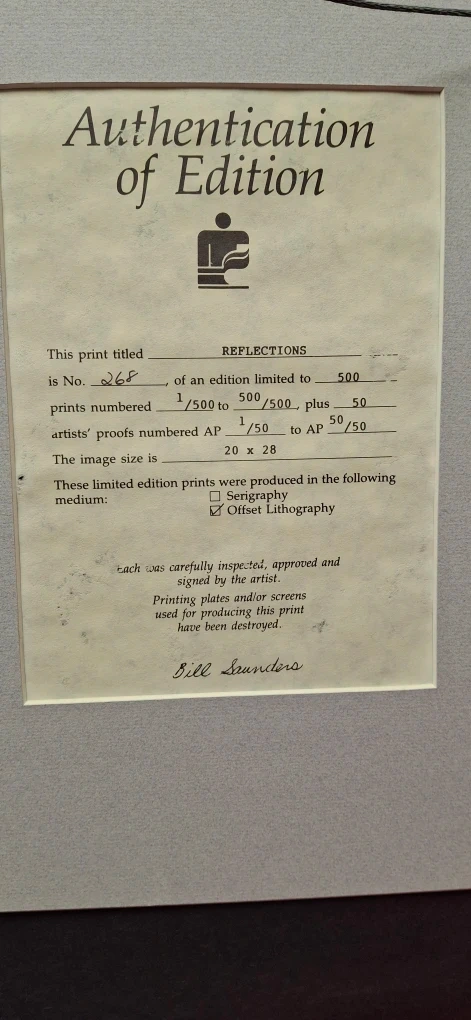 Authentication
of Edition
This print titled REFLECTIONS
is No. 268, of an edition limited to 500
prints numbered 1/500 to 500/500, plus 50
artists' proofs numbered AP 1/50 to AP 50/50
The image size is 20 x 28
These limited edition prints were produced in the following
medium: ☐ Serigraphy
☑ Offset Lithography
Each was carefully inspected, approved and
signed by the artist.
Printing plates and/or screens
used for producing this print
have been destroyed.
Bill Saunders